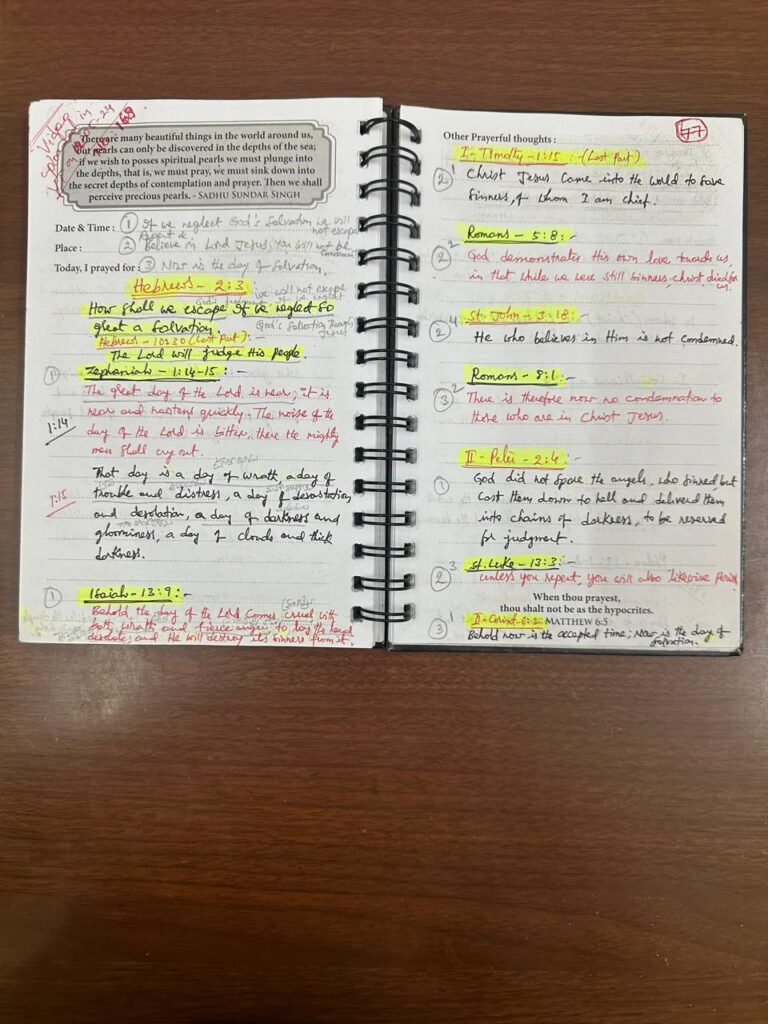 Video
There are many beautiful things in the world around us,
but pearls can only be discovered in the depths of the sea;
if we wish to posses spiritual pearls we must plunge into
the depths, that is, we must pray, we must sink down into
the secret depths of contemplation and prayer. Then we shall
perceive precious pearls. - SADHU SUNDAR SINGH
Date & Time : ① If we neglect God's Salvation we will
not escape
Place : ② Believe in Lord Jesus, You will not be
Today, I prayed for : ③ Now is the day of Salvation.
Hebrews - 2:3
we will not escape
God's judgement if we neglect
How shall we escape if we neglect so
great a Salvation God's Salvation through
Jesus
Hebrews - 10:30 (Last Part) : -
The Lord will judge His people.
① Zephaniah - 1:14-15 : -
The great day of the Lord is near; it is
near and hastens quickly. The noise of the
1:14 day of the Lord is bitter, there the mighty
men shall cry out.
That day is a day of wrath, a day of
1:15 trouble and distress, a day of devastation
and desolation, a day of darkness and
gloominess, a day of clouds and thick
darkness.
① Isaiah - 13:9 : -
Behold the day of the Lord Comes, cruel with
both wrath and fierce anger, to lay the land
desolate; and He will destroy its sinners from it.
77
Other Prayerful thoughts :
I - Timothy - 1:15 : - (Last Part)
② Christ Jesus Came into the world to Save
Sinners, of whom I am chief.
Romans - 5:8 : -
② God demonstrates His own love towards us,
in that while we were still sinners, christ died for
us
St. John - 3:18 : -
② He who believes in Him is not condemned.
Romans - 8:1 : -
③ There is therefore now no condemnation to
those who are in Christ Jesus.
II - Peter - 2:4 : -
① God did not spare the angels, who sinned but
Cast them down to hell and delivered them
into chains of darkness, to be reserved
for judgment.
St. Luke - 13:3 : -
② unless you repent, you will also likewise perish
When thou prayest,
thou shalt not be as the hypocrites.
③ II - Corint - 6:2 MATTHEW 6:5
Behold now is the accepted time; Now is the day of
Salvation.